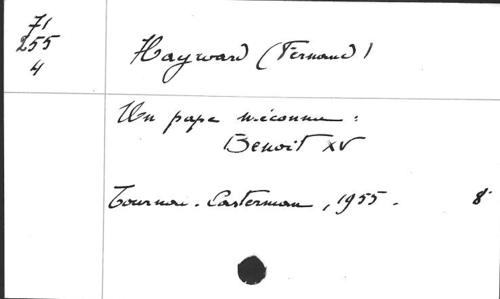 71
255
4
Hayward (Fernand)
Un pape méconnu :
Benoit XV
Tournai - Casterman, 1955. 8°